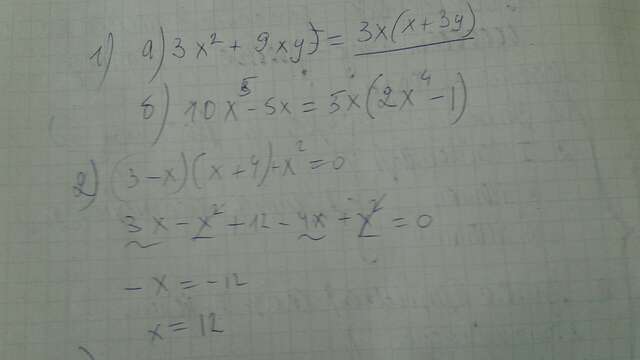 1) а) 3x² + 9xy = 3x(x+3y)
б) 10x⁵ - 5x = 5x(2x⁴ - 1)
2) (3-x)(x+4)+x²=0
3x - x² + 12 - 4x + x² = 0
-x = -12
x = 12